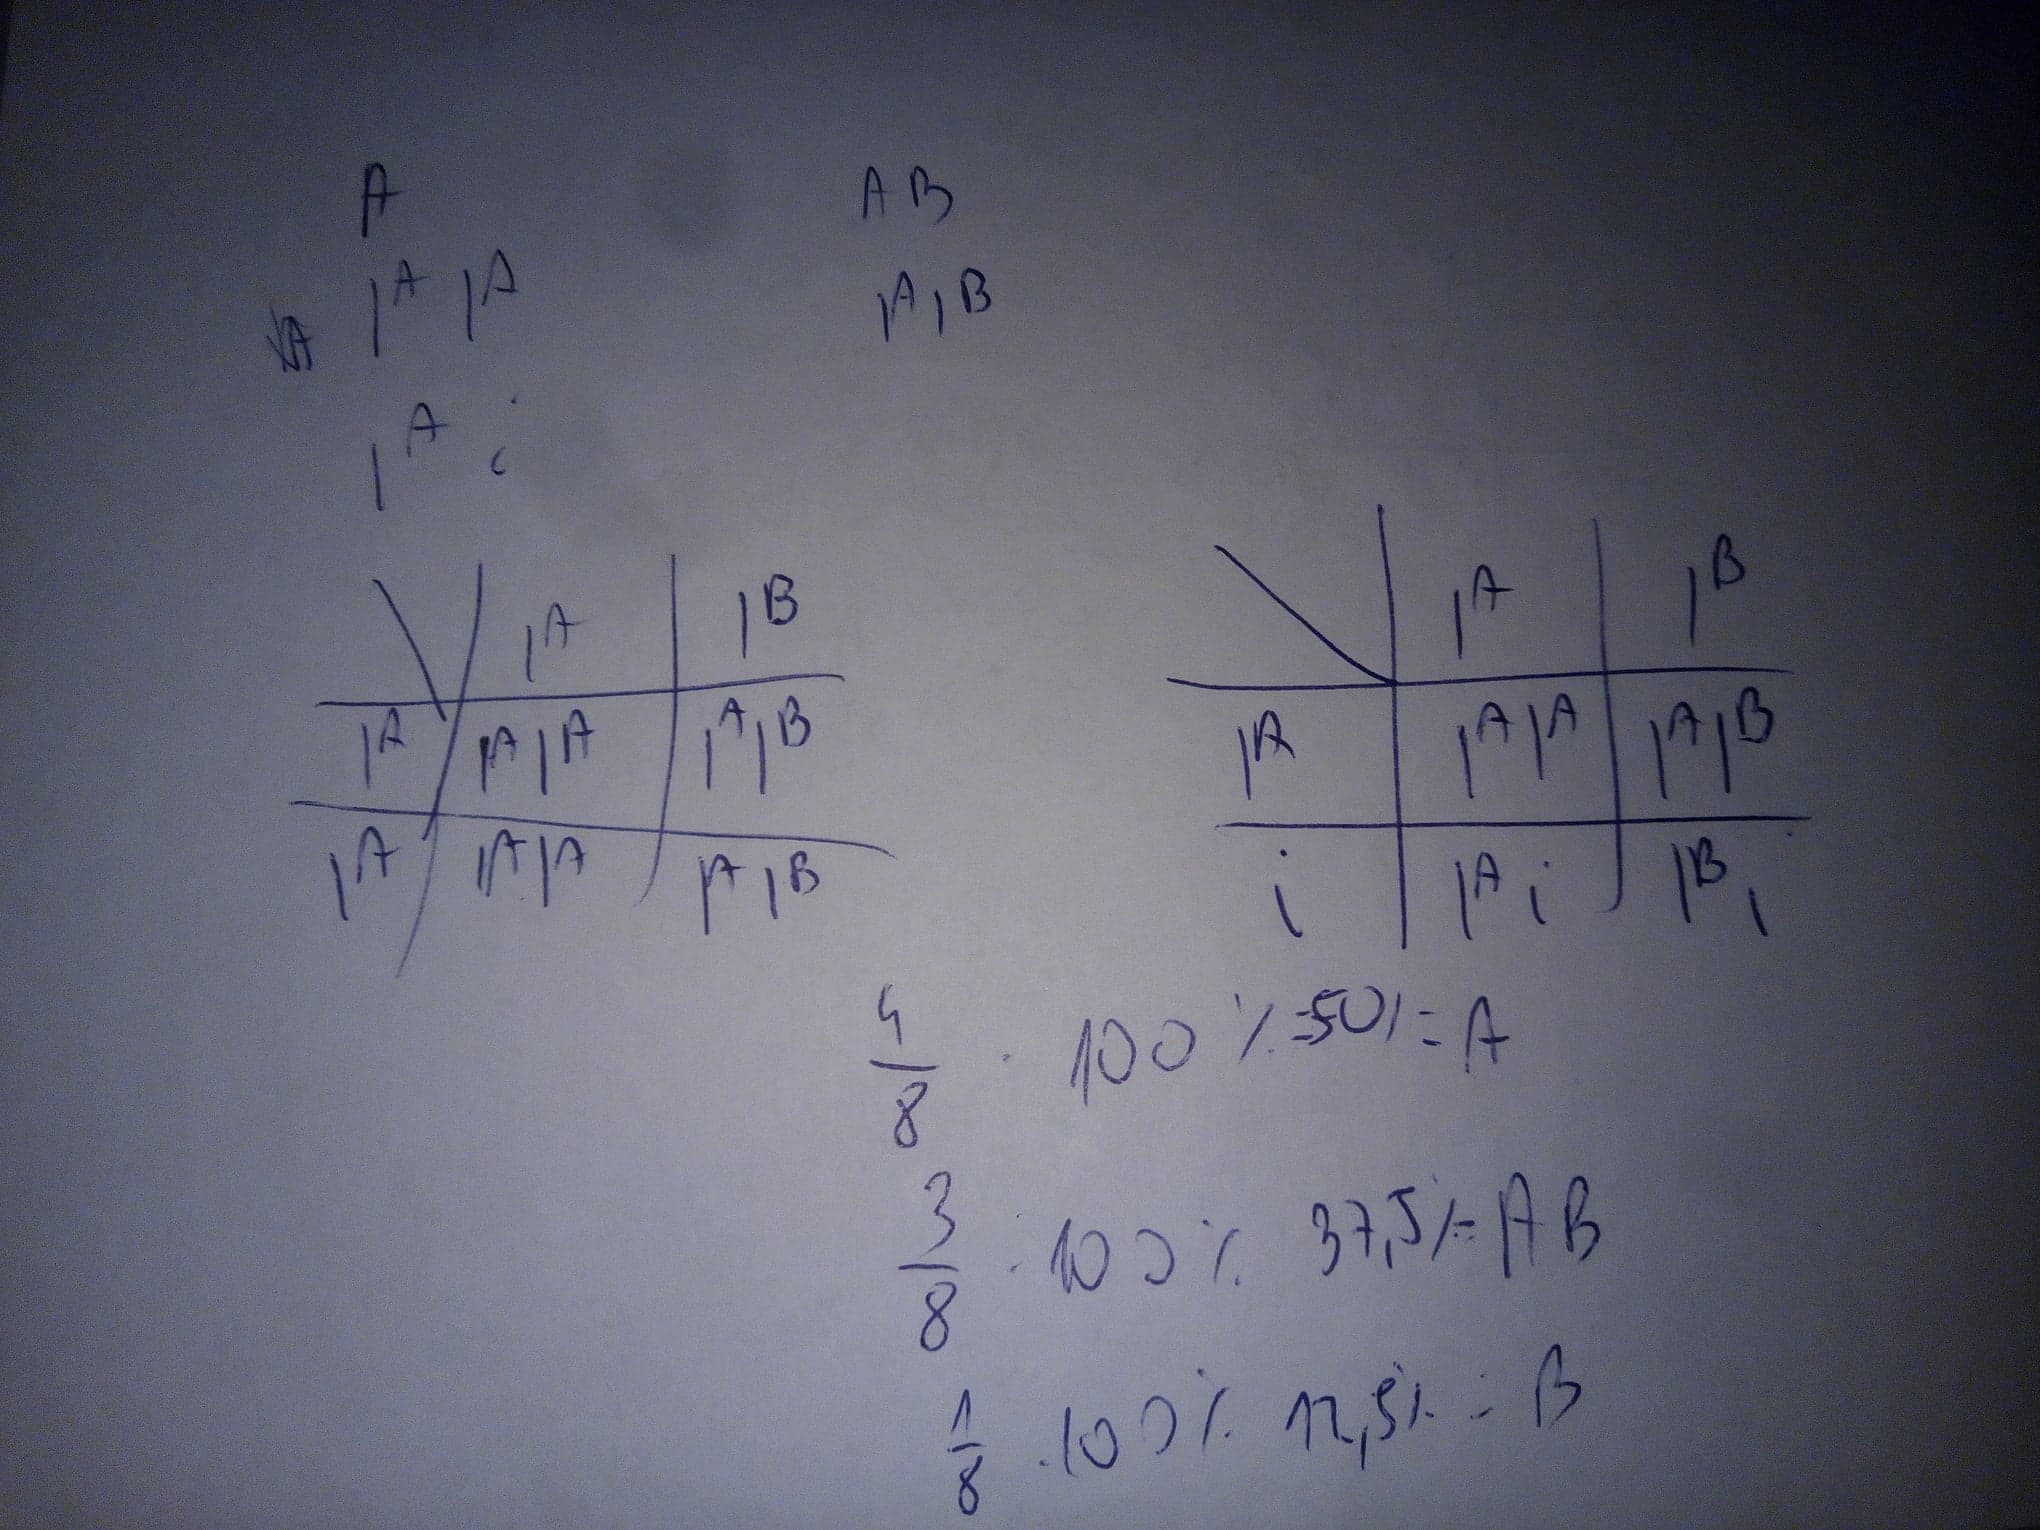 A AB
I^A I^A I^A I^B
I^A i
I^A I^B
I^A I^A I^A I^A I^B
I^A I^A I^A I^A I^B
I^A I^B
I^A I^A I^A I^A I^B
i I^A i I^B i
4/8 · 100% = 50% = A
3/8 · 100% 37,5% = AB
1/8 · 100% 12,5% = B